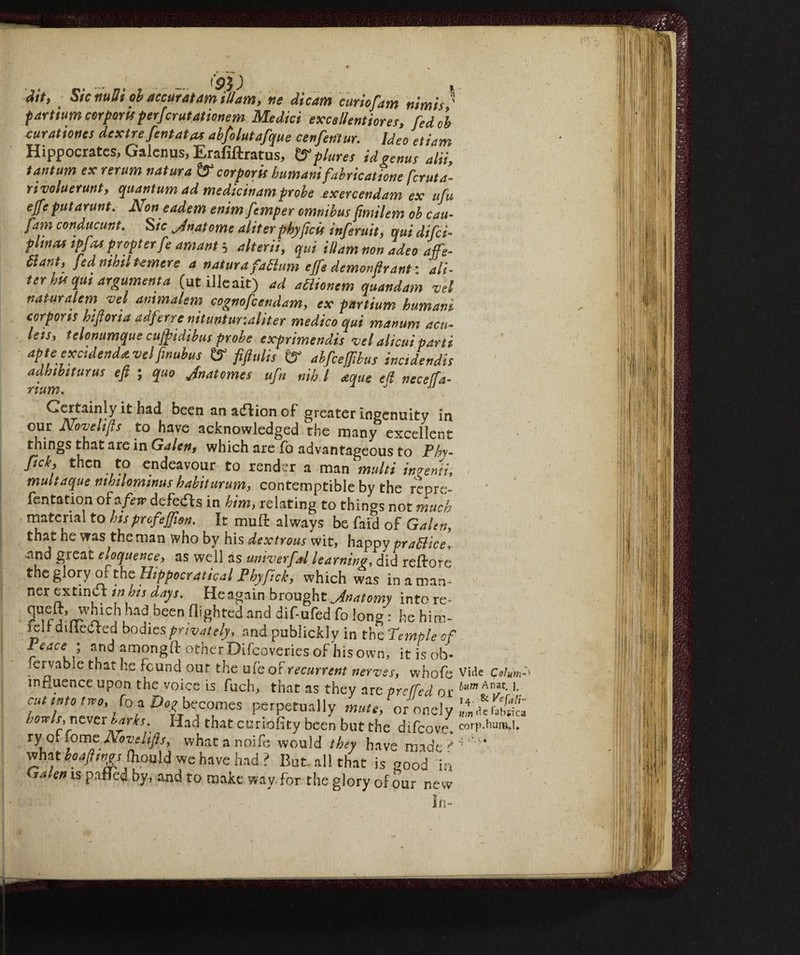 (93)
dit, Sic nulli ob accuratam illam, ne dicam curiosam nimis,
partium corporis perscrutationem Medici excellentiores, sed ob
curationes dextre sentatas absolutasque censentur. Ideo etiam
Hippocrates, Galenus, Erasistratus, & plures id genus alii,
tantum ex rerum natura & corporis humani fabricatione scruta-
ri voluerunt, quantum ad medicinam probe exercendam ex usu
esse putarunt. Non eadem enim semper omnibus similem ob cau-
sam conducunt. Sic Anatome aliter physicis inseruit, qui disci-
plinas ipsas propter se amant; alterii, qui illam non adeo affe-
ctant, sed nihil temere a natura factum esse demonstrant: ali-
ter his qui argumenta (ut ille ait) ad actionem quandam vel
naturalem vel animalem cognoscendam, ex partium humani
corporis historia adferre nituntur: aliter medico qui manum acu-
leis, telorumque cuspidibus probe exprimendis vel alicui parti
apte excidendæ vel sinubus & fistulis & abscessibus incidendis
adhibiturus est; quo Anatomes usu nihil æque est necessa-
rium.
Certainly it had been an action of greater ingenuity in
our Novelists to have acknowledged the many excellent
things that are in Galen, which are so advantageous to Phy-
sick, then to endeavour to render a man multi ingenii,
multaque nihilominus habiturum, contemptible by the repre-
sentation of a few defects in him, relating to things not much
material to his profession. It must always be said of Galen,
that he was the man who by his dextrous wit, happy practice,
and great eloquence, as well as universal learning, did restore
the glory of the Hippocratical Physick, which was in a man-
ner extinct in his days. He again brought Anatomy into re-
quest, which had been slighted and dis-used so long: he him-
self dissected bodies privately, and publickly in the Temple of
Peace; and amongst other Discoveries of his own, it is ob-
servable that he found out the use of recurrent nerves, whose
influence upon the voice is such, that as they are pressed or
cut into two, so a Dog becomes perpetually mute, or onely
howls, never barks. Had that curiosity been but the discove-
ry of some Novelists, what a noise would they have made?
what boastings should we have had? But all that is good in
Galen is passed by, and to make way for the glory of our new
In-
Vide Colum-
bum Anat. l.
14. & Vesali-
um de fabrica
corp. hum. l.